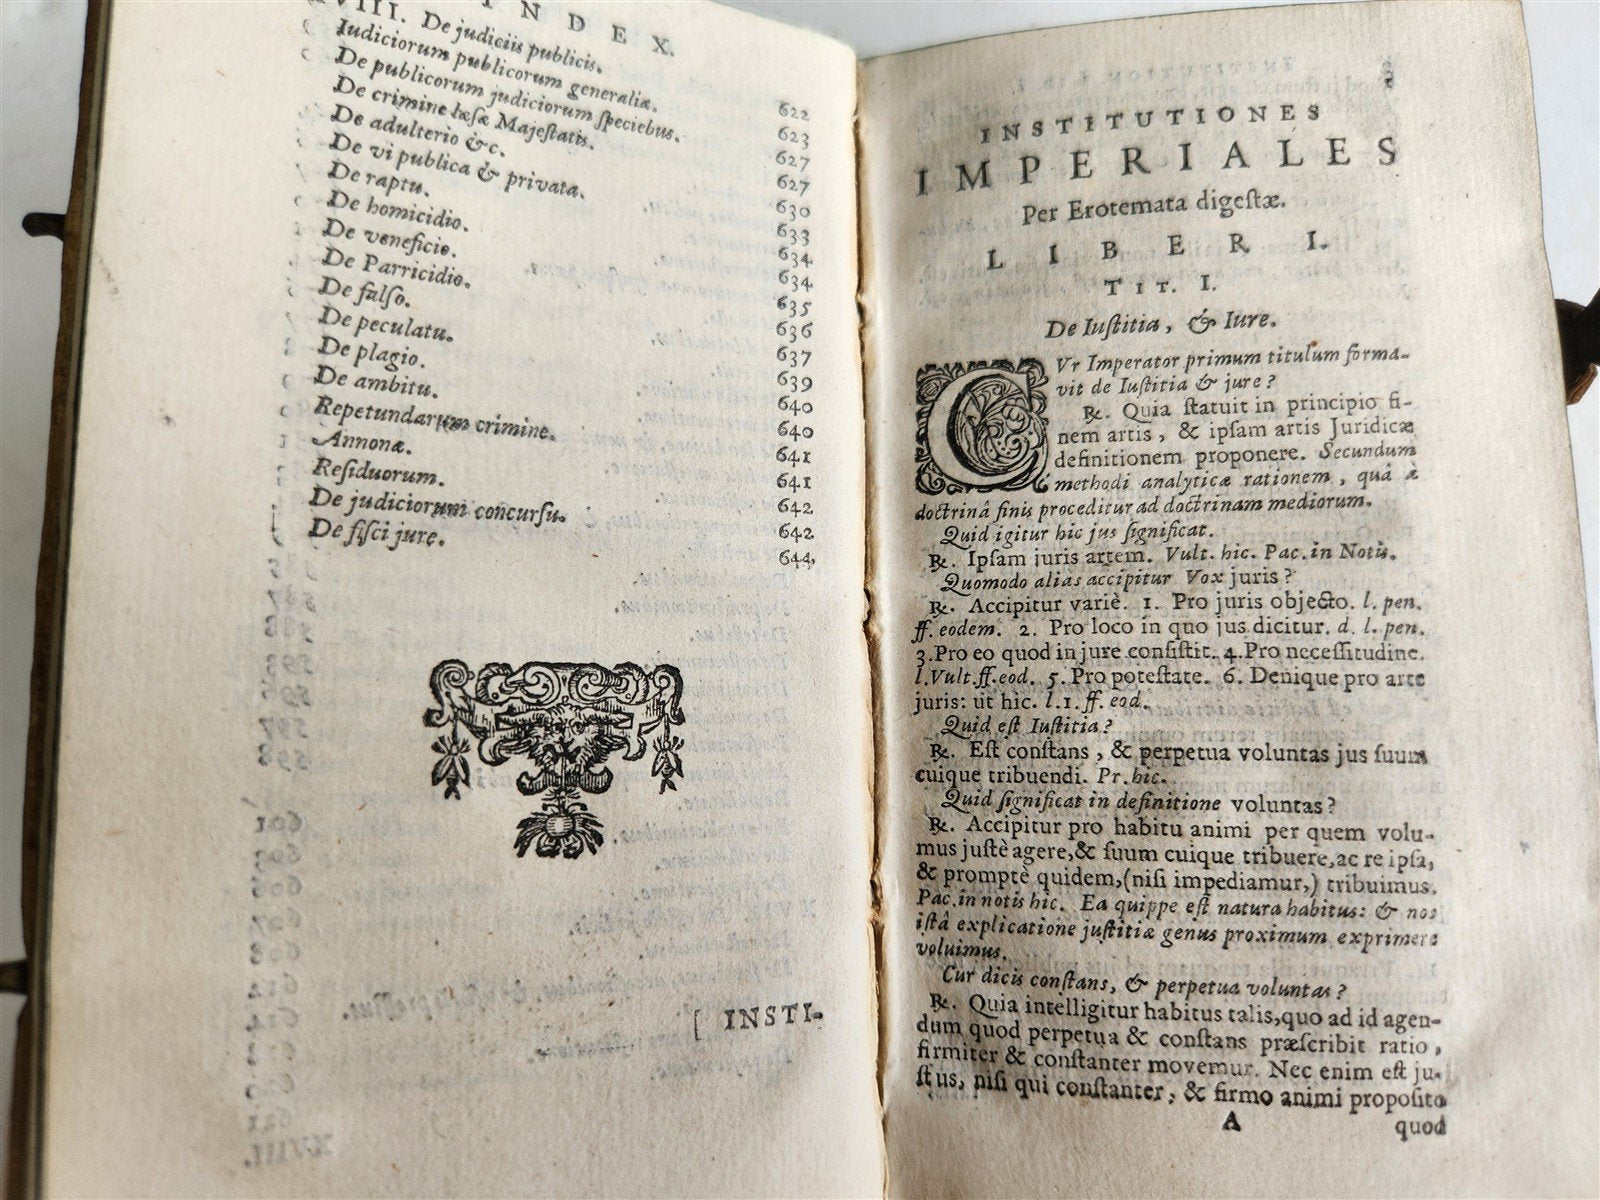 INDEX.
VIII. De judiciis publicis.
Iudiciorum publicorum generaliæ. 622
De publicorum judiciorum speciebus. 623
De crimine læsæ Majestatis. 627
De adulterio &c. 627
De vi publica & privata. 630
De raptu. 633
De homicidio. 634
De veneficio. 634
De Parricidio. 635
De falso. 636
De peculatu. 637
De plagio. 639
De ambitu. 640
Repetundarum crimine. 640
Annonæ. 641
Residuorum. 641
De judiciorum concursu. 642
De fisci jure. 642
644
INSTI-
INSTITUTIONES
IMPERIALES
Per Erotemata digestæ.
LIBER I.
TIT. I.
De Iustitia, & Iure.
CVr Imperator primum titulum forma-
vit de Iustitia & jure?
℞. Quia statuit in principio fi-
nem artis, & ipsam artis Juridicæ
definitionem proponere. Secundum
methodi analyticæ rationem, quâ à
doctrinâ finis proceditur ad doctrinam mediorum.
Quid igitur hic jus significat.
℞. Ipsam juris artem. Vult. hic. Pac. in Notis.
Quomodo alias accipitur Vox juris?
℞. Accipitur variè. 1. Pro juris objecto. l. pen.
ff. eodem. 2. Pro loco in quo jus dicitur. d. l. pen.
3. Pro eo quod in jure consistit. 4. Pro necessitudine.
l. Vult. ff. eod. 5. Pro potestate. 6. Denique pro arte
juris: ut hic. l. 1. ff. eod.
Quid est Iustitia?
℞. Est constans, & perpetua voluntas jus suum
cuique tribuendi. Pr. hic.
Quid significat in definitione voluntas?
℞. Accipitur pro habitu animi per quem volu-
mus justè agere, & suum cuique tribuere, ac re ipsa,
& promptè quidem, (nisi impediamur,) tribuimus.
Pac. in notis hic. Ea quippe est natura habitus: & nos
istâ explicatione justitiæ genus proximum exprimere
voluimus.
Cur dicis constans, & perpetua voluntas?
℞. Quia intelligitur habitus talis, quo ad id agen-
dum quod perpetua & constans præscribit ratio,
firmiter & constanter movemur. Nec enim est ju-
stus, nisi qui constanter, & firmo animi proposito
A quod